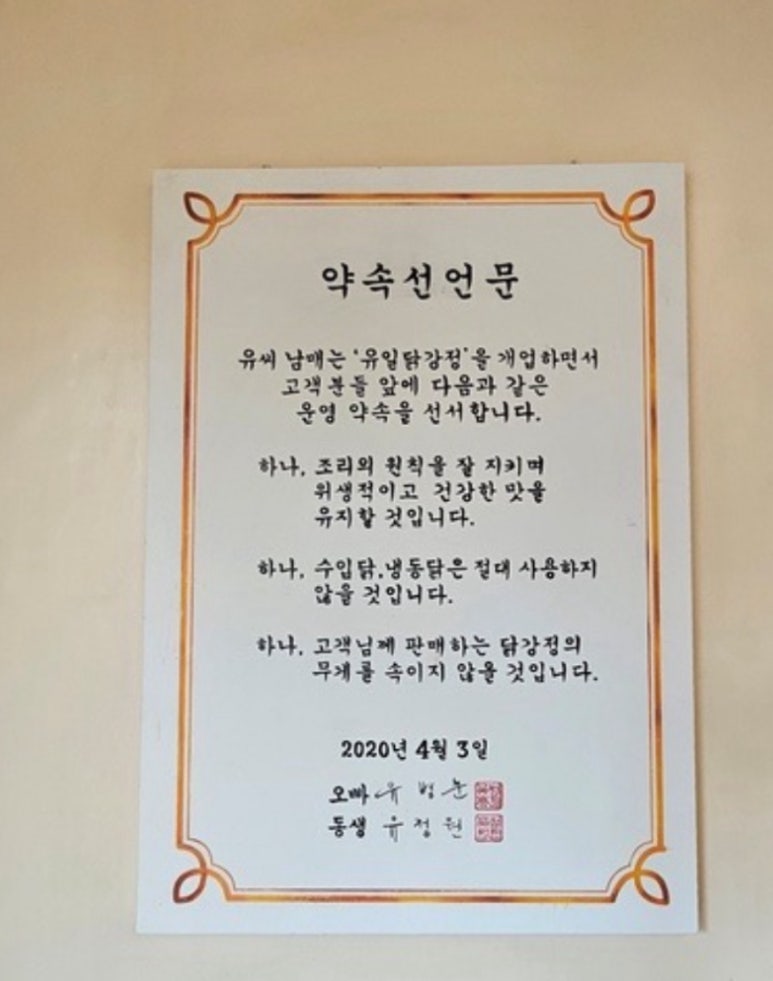 약속선언문
유씨 남매는 '유일닭강정'을 개업하면서
고객분들 앞에 다음과 같은
운영 약속을 선서합니다.
하나, 조리의 원칙을 잘 지키며
위생적이고 건강한 맛을
유지할 것입니다.
하나, 수입닭,냉동닭은 절대 사용하지
않을 것입니다.
하나, 고객님께 판매하는 닭강정의
무게를 속이지 않을 것입니다.
2020년 4월 3일
오빠 유병
동생 유정원